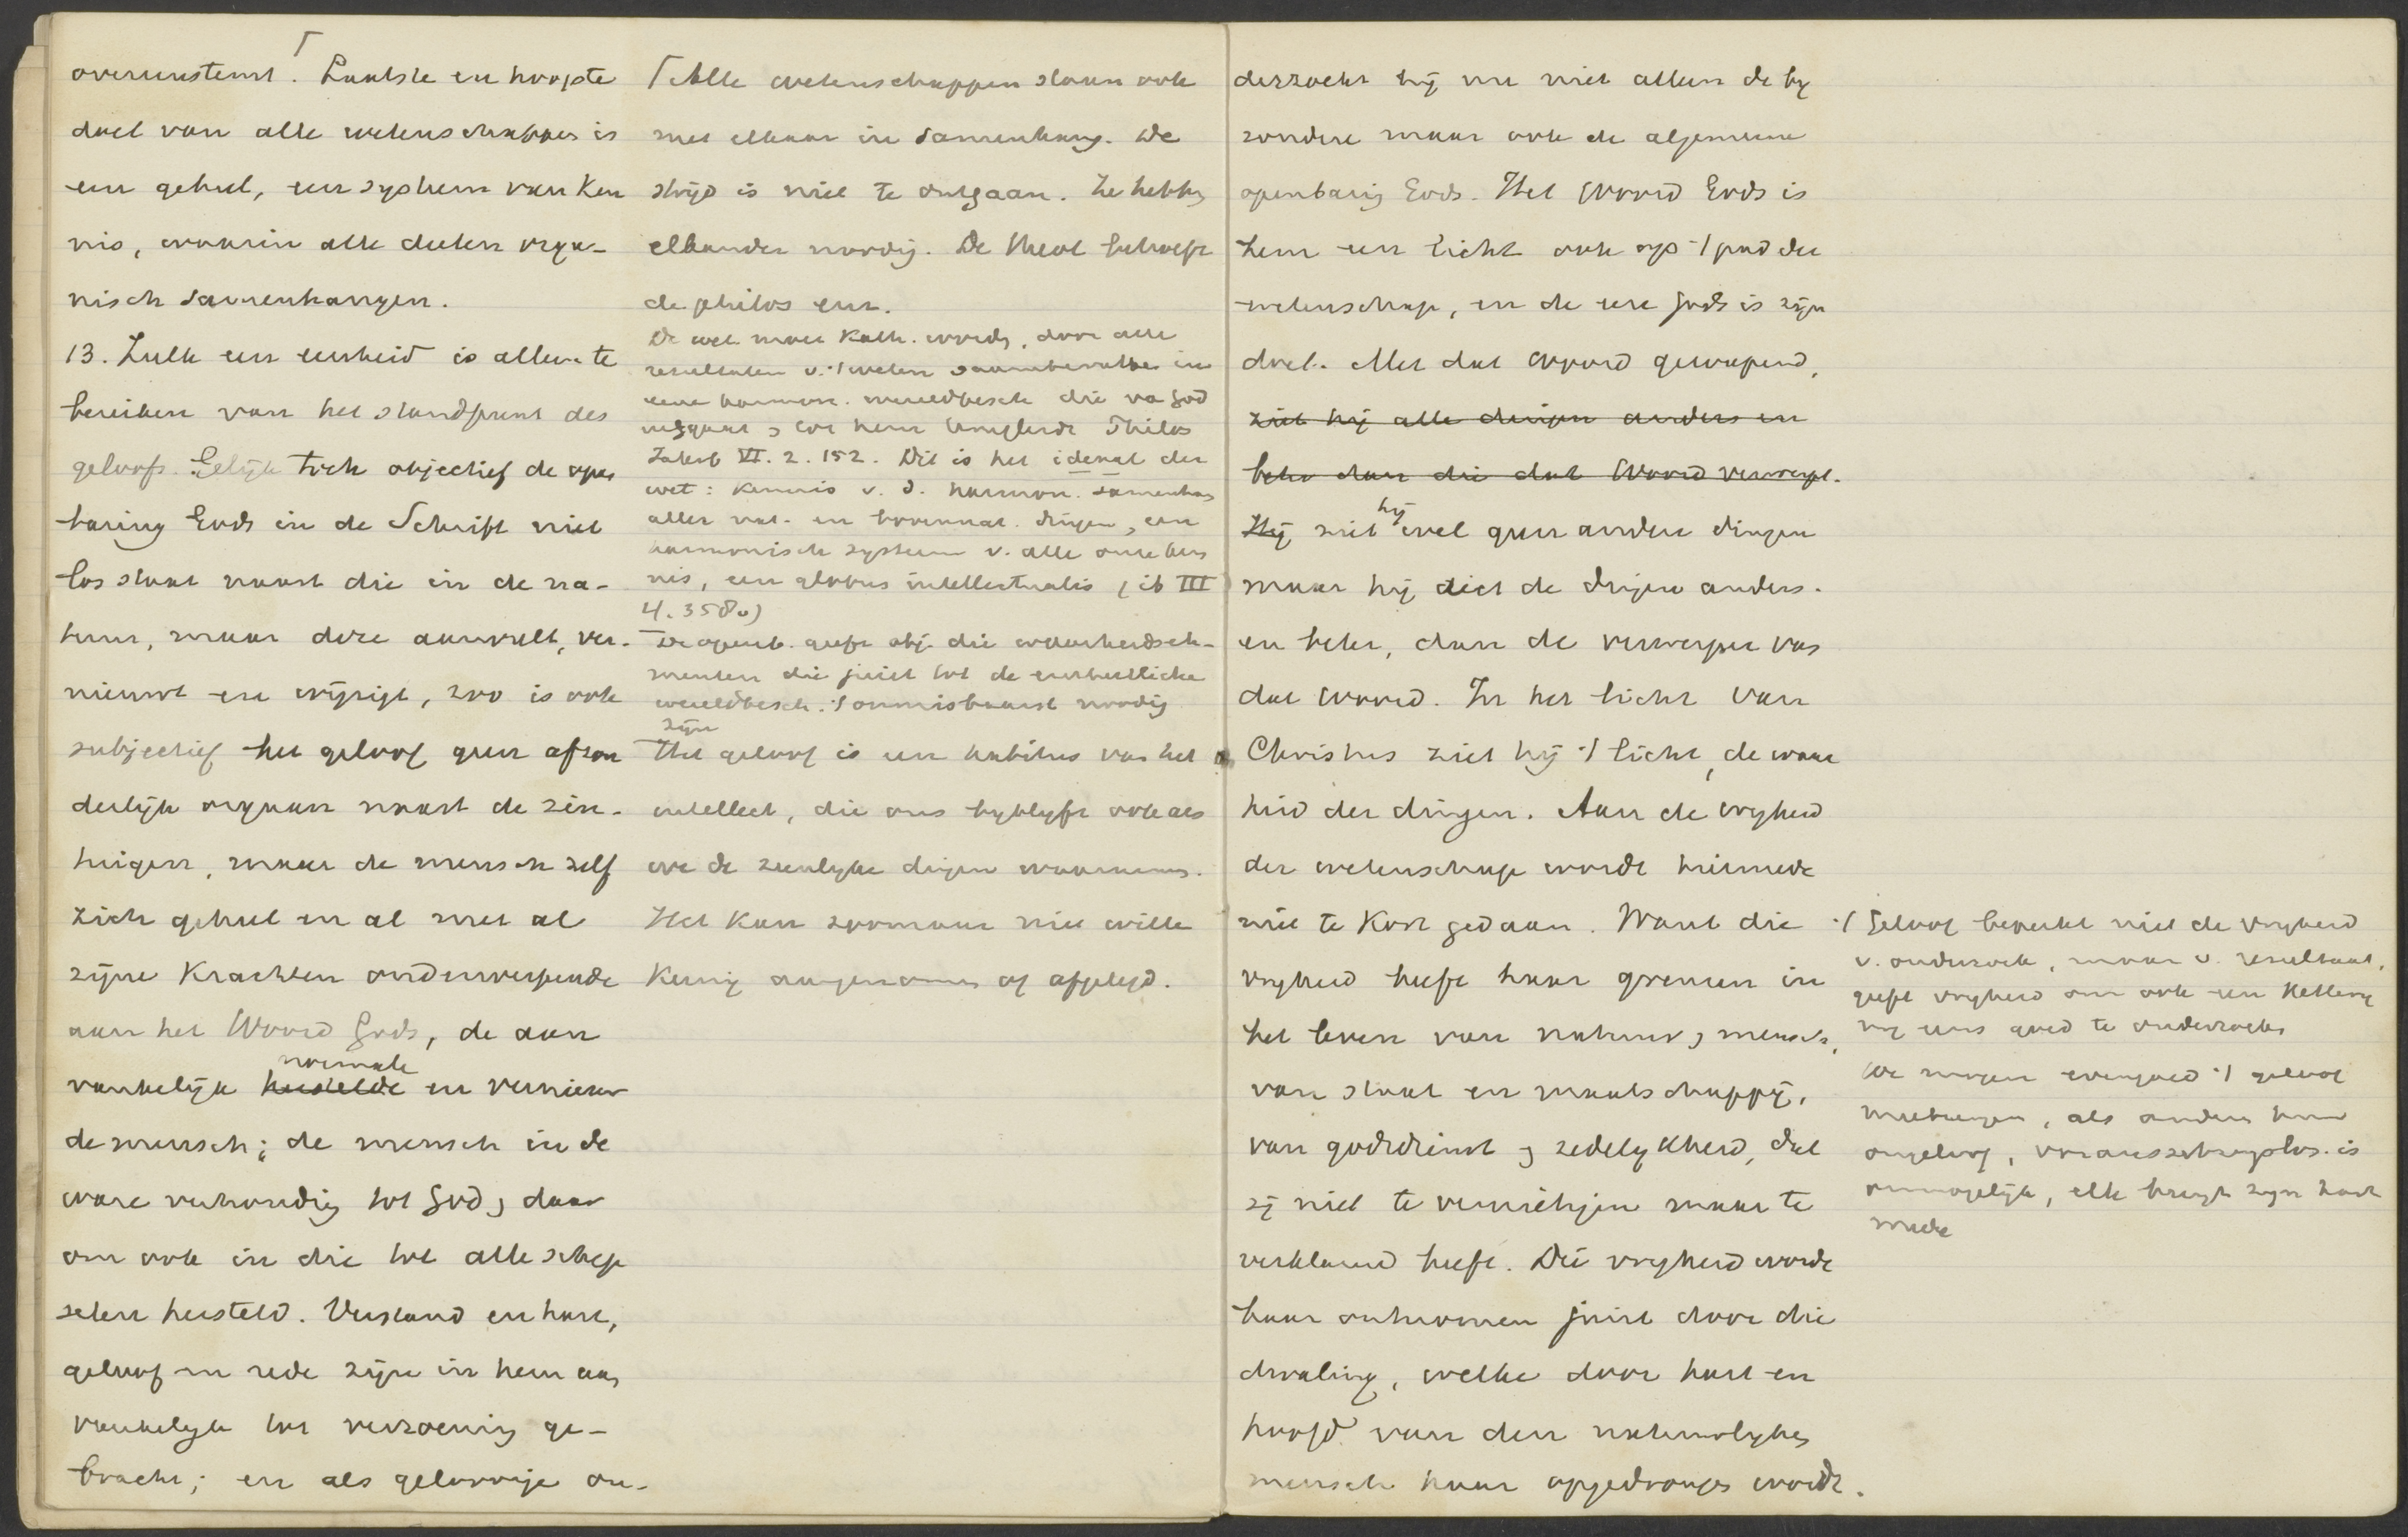 overeenstemt. Laatste en hoogste
doel van alle wetenschappen is
een geheel, een systeem van ken
nis, waarin alle deelen orga-
nisch samenhangen.
13. Zulk een eenheid is alleen te
bereiken van het standpunt des
geloofs. Gelijk toch objectief de open
baring Gods in de Schrift niet
los staat naast die in de na-
tuur, maar deze aanvult, ver-
nieuwt en wijzigt, zoo is ook
subjectief het geloof geen afzon
derlijk orgaan naast de zin-
tuigen, maar de mensch zelf
zich geheel en al met al
zijne krachten onderwerpende
aan het Woord Gods, de aan
normale
vankelijk herstelde en vernieuw
de mensch; de mensch in de
ware verhouding tot God, daar
om ook in die tot alle schep
selen hersteld. Verstand en hart,
geloof en rede zijn in hem aan
vankelijk tot verzoening ge-
bracht; en als geloovige on-
Γ Alle wetenschappen staan ook
met elkaar in samenhang. De
strijd is niet te ontgaan. Ze hebben
elkander noodig. De theol behoeft
de philos en.
De wet. moet kath. worden, door alle
resultaten v. ·/ weten saamtevatten in
eene harmon. wereldbesch die va God
uitgaat, tot hem Philos
Jahrb VI. 2. 152. Dit is het ideaal der
wet: kennis v. d. harmon. samenhang
aller nat. en bovennat. dingen, een
harmonisch systeem v. alle onze ken
nis, een globus intellectualis (ib III
4. 358v)
De openb. geeft obj. die waarheidsele-
menten die juist tot de eenheidliche
wereldbesch. ·/ onmisbaarst noodig
zijn
Het geloof is een habitus van het
intellect, die ons byblyft ook als
we de zienlyke dingen waarnemen.
Het kan zoomaar niet wille
keurig aangenomen of afgelegd.
derzoekt hij nu niet alleen de by
zondere maar ook de algemeene
openbaring Gods. Het Woord Gods is
hem een licht ook op ·/ pad der
wetenschap, en de eere Gods is zijn
doel. Met dat Woord gewapend,
ziet hij alle dingen anders en
beter dan die dat Woord verwerpt.
hij
Hij ziet wel geen andere dingen
maar hij ziet de dingen anders.
en beter, dan de verwerper van
dat Woord. In het licht van
Christus ziet hij ·/ licht, de waar
heid der dingen. Aan de vryheid
der wetenschap wordt hiermede
niet te kort gedaan. Want die
vryheid heeft haar grenzen in
het leven van natuur, mensch,
van staat en maatschappij,
van godsdienst, zedelykheid, dat
zij niet te vernietigen maar te
verklaren heeft. Die vryheid wordt
haar ontnomen juist door die
dwaling, welke door hart en
hoofd van den natuurlyken
mensch haar opgedrongen wordt.
·/ Geloof beperkt niet de vryheid
v. onderzoek, maar v. resultaat,
geeft vryheid om ook een ketterij
nog eens goed te onderzoeken
We mogen evengoed ·/ geloof
meebrengen, als anderen hun
ongeloof, voraussetzungslos. is
onmogelijk, elk brengt zijn hart
mede